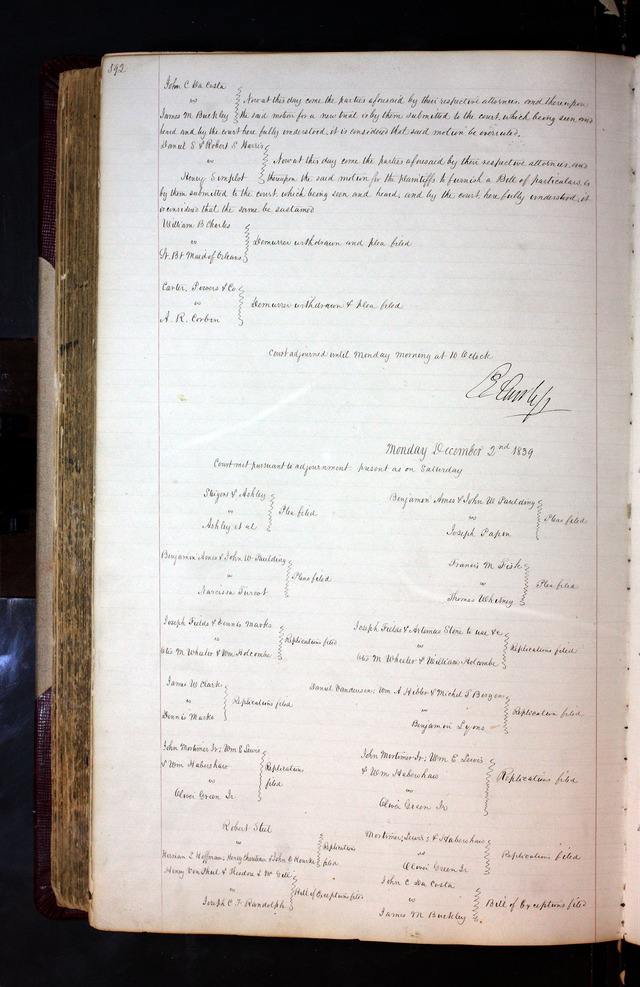 392
John C Da Costa
vs
James M Buckley
Now at this day come the parties aforesaid by their respective attornies and thereupon
the said motion for a new trial is by them submitted to the court, which being seen and
heard and by the court here fully understood, it is considered that said motion be overruled.
Daniel S & Robert S Harris
vs
Henry Simplot
Now at this day come the parties aforesaid by their respective attornies and
thereupon the said motion for the plaintiffs to furnish a Bill of particulars is
by them submitted to the court, which being seen and heard, and by the court here fully understood, it
is considered that the same be sustained
William B Charles
vs
St. Bt Maid of Orleans
Demurrer withdrawn and plea filed
Carter, Powers & Co
vs
A. R. Corbin
Demurrer withdrawn & plea filed
Court adjourned until Monday morning at 10 O'clock
Monday December 2nd 1839
Court met pursuant to adjournment present as on Saturday
Steigers & Ashley
vs
Ashley et al
Plea filed
Benjamin Ames & John W Paulding
vs
Joseph Papin
Pleas filed
Benjamin Ames & John W Paulding
vs
Narcissa Turcot
Pleas filed
Francis M Fisk
vs
Thomas Whitney
Plea filed
Joseph Fields & Dennis Marks
vs
Otis M Wheeler & Wm Holcombe
Replications filed
Joseph Fields & Artemas Stone to use &c
vs
Otis M Wheeler & William Holcombe
Replications filed
James W Clark
vs
Dennis Marks
Replications filed
Daniel Vandersen, Wm A Hibler & Michel T Bergen
vs
Benjamin Lyons
Replication filed
John Mortimer Jr; Wm E Lewis
& Wm Habershaw
vs
Oliver Green Jr
Replications
filed
John Mortimer Jr; Wm E. Lewis
& Wm Habershaw
vs
Oliver Green Jr
Replications filed
Robert Steel
vs
Herman L Hoffman, Henry Christman & John O Rourke
Replication
filed
Mortimer; Lewis; & Habershaw
vs
Oliver Green Jr
Replications filed
Henry Von Phul & Theodore L McGill
vs
Joseph C F Randolph
Bill of Exceptions filed
John C Da Costa
vs
James M Buckley
Bill of Exceptions filed